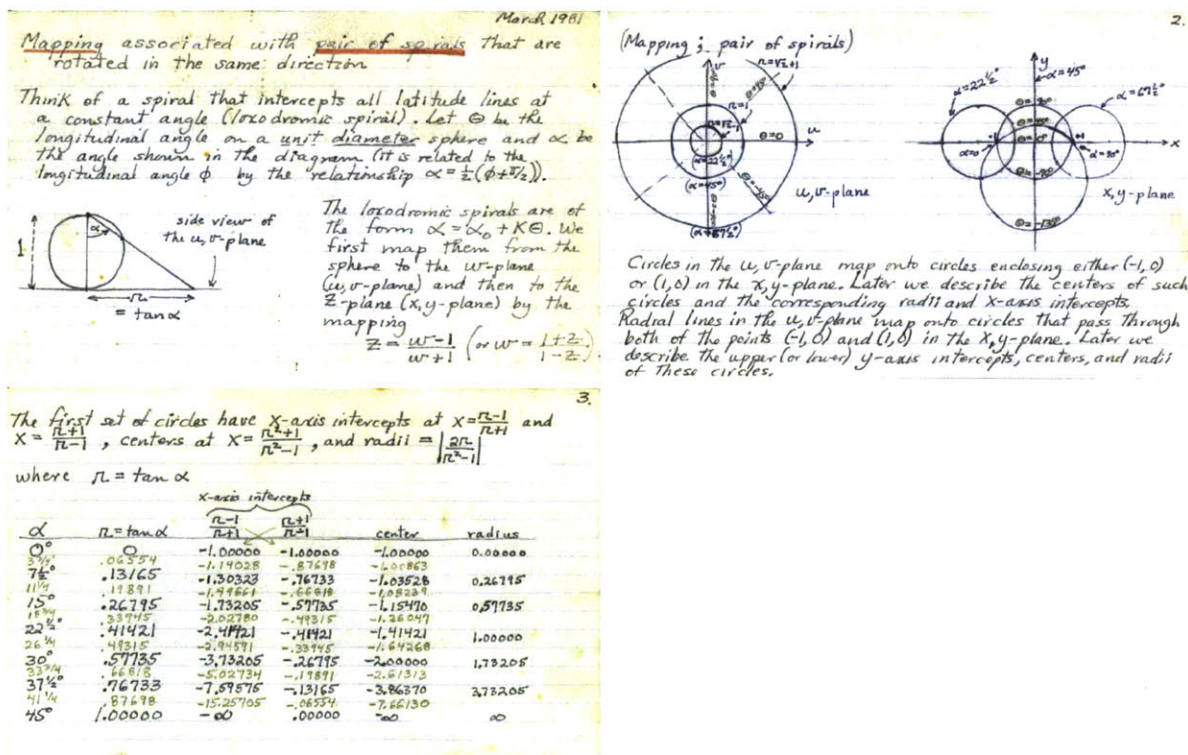 March 1981
Mapping associated with pair of spirals that are
rotated in the same direction
Think of a spiral that intercepts all latitude lines at
a constant angle (loxodromic spiral). Let θ be the
longitudinal angle on a unit diameter sphere and α be
the angle shown in the diagram (it is related to the
longitudinal angle ϕ by the relationship α = ½(ϕ+π/2)).
1
α
side view of
the u,v-plane
r
= tan α
The loxodromic spirals are of
the form α = α₀ + Kθ. We
first map them from the
sphere to the w-plane
(u,v-plane) and then to the
Z-plane (x,y-plane) by the
mapping
Z = w-1/w+1 (or w = 1+Z/1-Z)
2.
(Mapping; pair of spirals)
v
r=√2+1
θ=90°
θ=45°
r=1
r=√2-1
θ=0
u
(α=22½°)
(α=45°)
θ=-45°
θ=-90°
(α=67½°)
u,v-plane
y
α=45°
α=22½°
α=67½°
θ=90°
θ=0°
-1
+1
x
α=0°
α=90°
θ=-90°
x,y-plane
θ=-135°
Circles in the u,v-plane map onto circles enclosing either (-1,0)
or (1,0) in the x,y-plane. Later we describe the centers of such
circles and the corresponding radii and x-axis intercepts.
Radial lines in the u,v-plane map onto circles that pass through
both of the points (-1,0) and (1,0) in the x,y-plane. Later we
describe the upper (or lower) y-axis intercepts, centers, and radii
of these circles.
3.
The first set of circles have x-axis intercepts at x = r-1/r+1 and
x = r+1/r-1, centers at x = r²+1/r²-1, and radii = |2r/r²-1|
where r = tan α
x-axis intercepts
α r = tan α r-1/r+1 r+1/r-1 center radius
0° 0 -1.00000 -1.00000 -1.00000 0.00000
3¾° .06554 -1.14028 -.87698 -1.00863
7½° .13165 -1.30323 -.76733 -1.03528 0.26795
11¼ .19891 -1.49661 -.66818 -1.08239
15° .26795 -1.73205 -.57735 -1.15470 0.57735
18¾ .33945 -2.02780 -.49315 -1.26047
22½° .41421 -2.41421 -.41421 -1.41421 1.00000
26¼ .49315 -2.94591 -.33945 -1.64268
30° .57735 -3.73205 -.26795 -2.00000 1.73205
33¾ .66818 -5.02734 -.19891 -2.61313
37½° .76733 -7.59575 -.13165 -3.86370 3.73205
41¼ .87698 -15.25705 -.06554 -7.66130
45° 1.00000 -∞ .00000 -∞ ∞